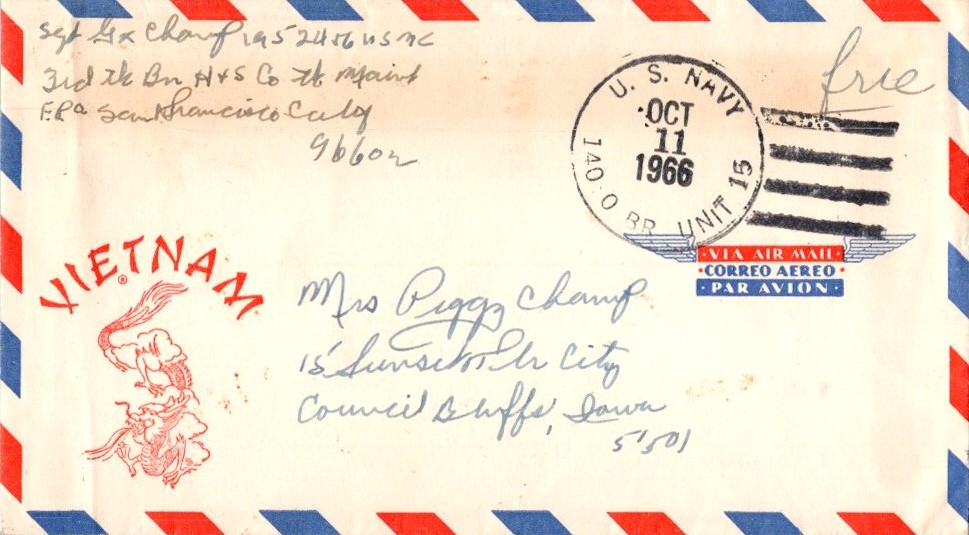 Sgt Gx Champ 1952456 USMC
3rd Tk Bn H+S Co Tk Maint
F.P.O San Francisco Calif
96602
free
U. S. NAVY
OCT
11
1966
14010 BR. UNIT 15
VIETNAM
VIA AIR MAIL
CORREO AEREO
PAR AVION
Mrs Peggy Champ
15 Sunset Tlr City
Council Bluffs, Iowa
51501